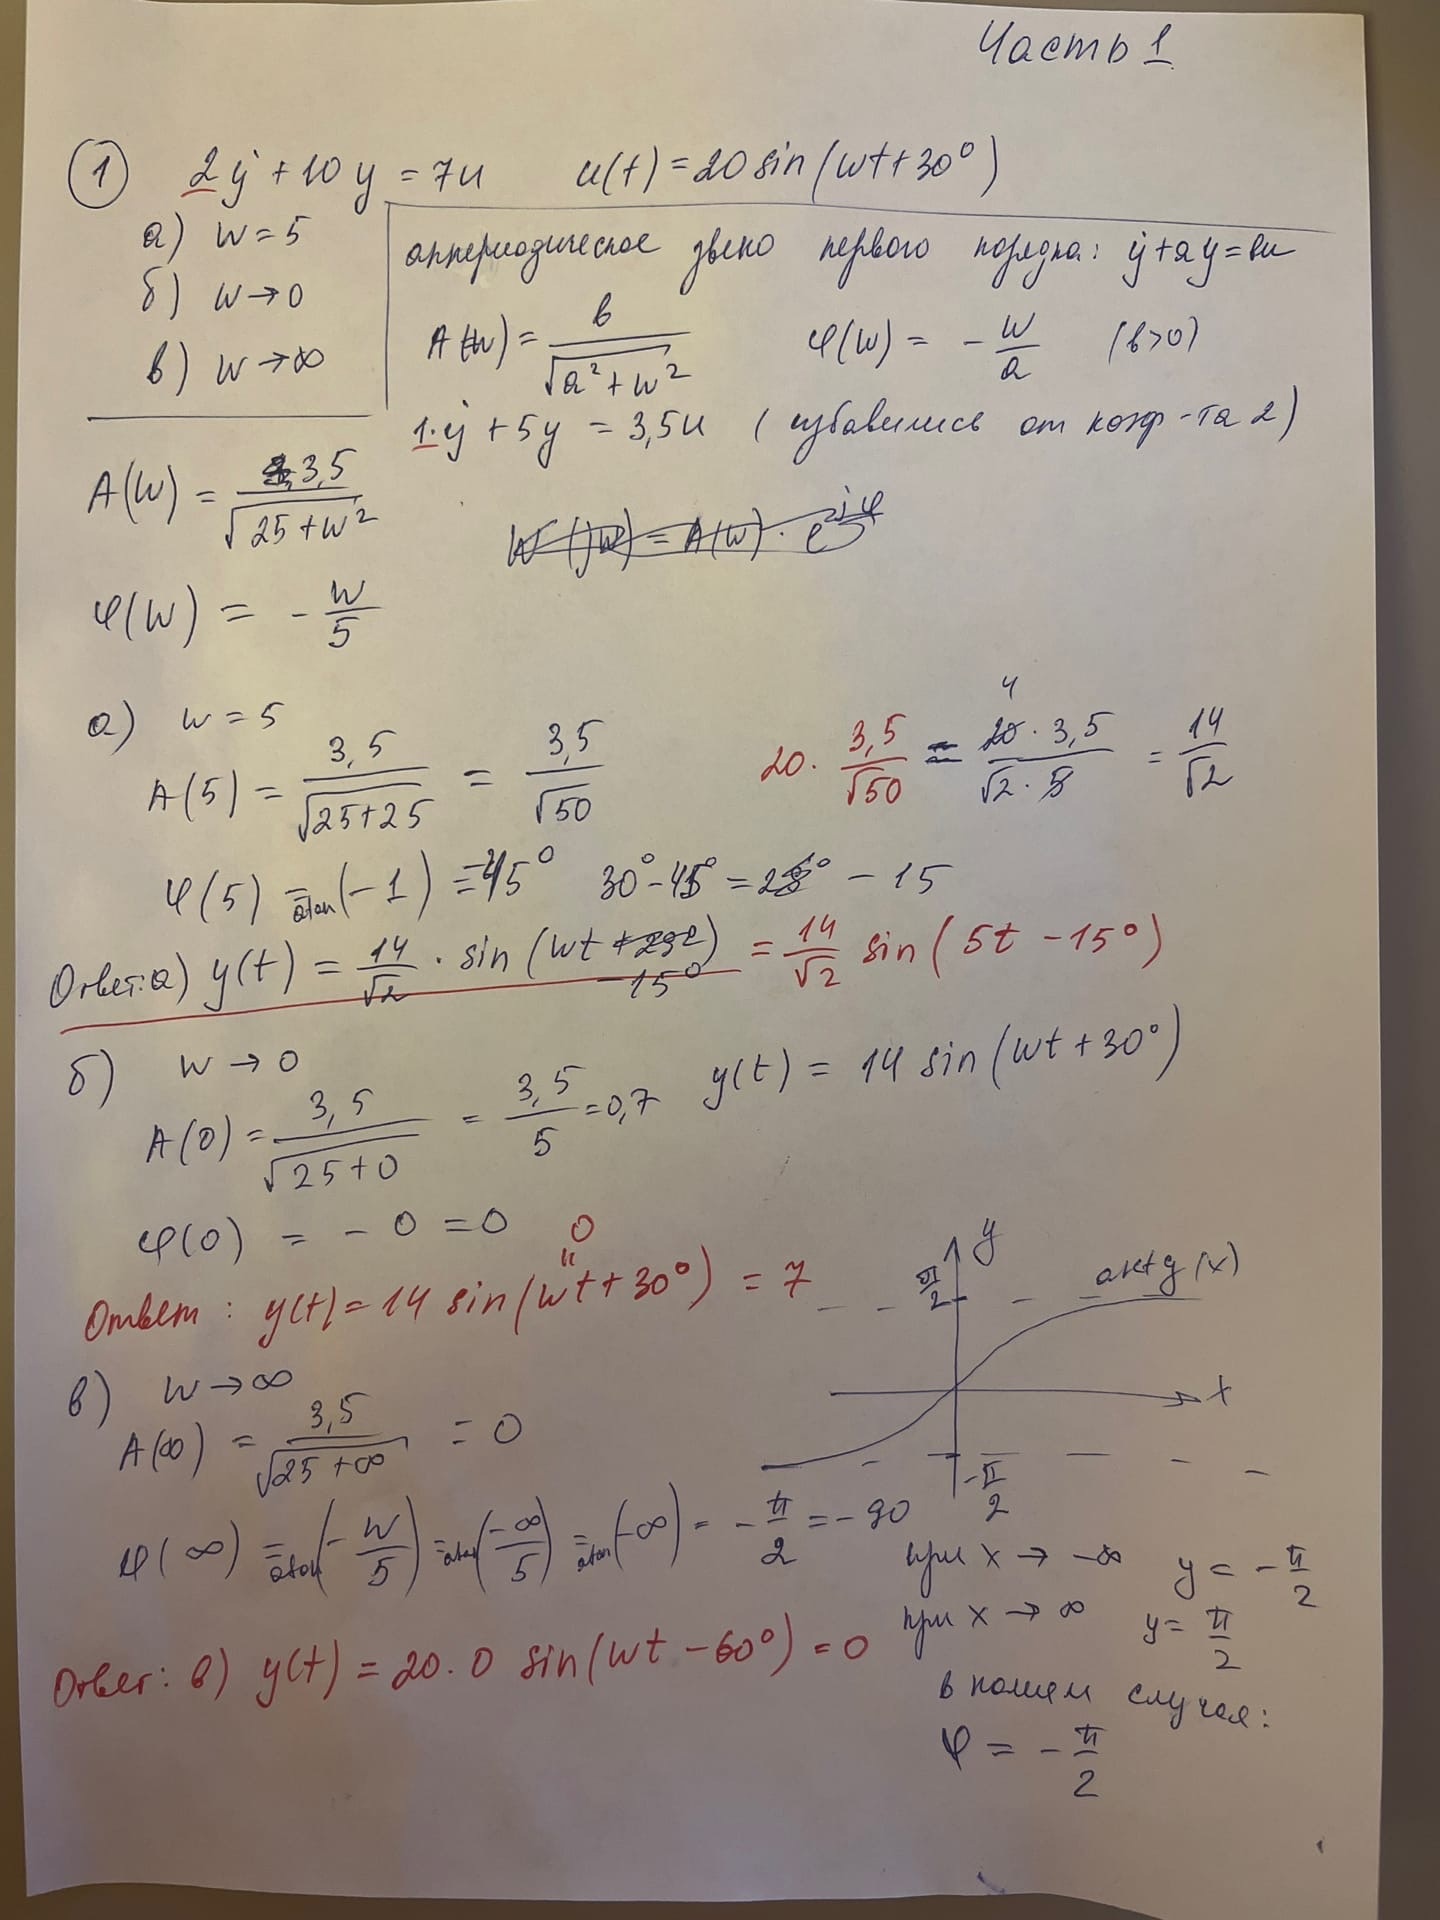 Часть 1
① 2ẏ + 10y = 7u   u(t) = 20 sin(wt + 30°)
а) w = 5
б) w → 0
в) w → ∞
апериодическое звено первого порядка: ẏ + ay = bu
A(w) = b / √(a² + w²)   φ(w) = - w/a   (b>0)
1·ẏ + 5y = 3,5u   (избавились от коэф-та 2)
A(w) = 3,5 / √(25 + w²)
W(jw) = A(w) · e^jφ
φ(w) = - w/5
а) w = 5
A(5) = 3,5 / √(25+25) = 3,5 / √50   20 · 3,5/√50 = 20 · 3,5 / (√2 · 5) = 14/√2
4
φ(5) = atan(-1) = -45°   30° - 45° = - 15
Ответ: а) y(t) = 14/√2 · sin(wt - 15°) = 14/√2 sin(5t - 15°)
б) w → 0
A(0) = 3,5 / √(25+0) = 3,5/5 = 0,7   y(t) = 14 sin(wt + 30°)
φ(0) = - 0 = 0
0
"
Ответ: y(t) = 14 sin(wt + 30°) = 7
в) w → ∞
A(∞) = 3,5 / √(25 + ∞) = 0
φ(∞) = atan(- w/5) = atan(-∞/5) = atan(-∞) = - π/2 = - 90
Ответ: в) y(t) = 20 · 0 sin(wt - 60°) = 0
y
π/2
arctg(x)
x
-π/2
при x → -∞   y = - π/2
при x → ∞   y = π/2
в нашем случае:
φ = - π/2